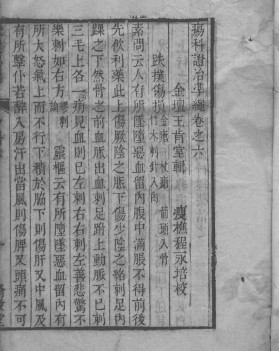 瘍科證治準繩卷之六
金壇王肯堂輯
瘦樵程永培校
跌撲傷損
素問云人有所墮墜惡血留內腹中滿脹不得前後
先飲利藥此上傷厥陰之脈下傷少陰之絡刺足內
踝之下然骨之前血脈出血刺足跗上動脈不已刺
三毛上各一痏見血則已左刺右右刺左善悲驚不
樂刺如右方繆刺論靈樞云有所墮墜惡血留內有
所大怒氣上而不行下積於脇下則傷肝又中風及
有所擊仆若醉入房汗出當風則傷脾又頭痛不可